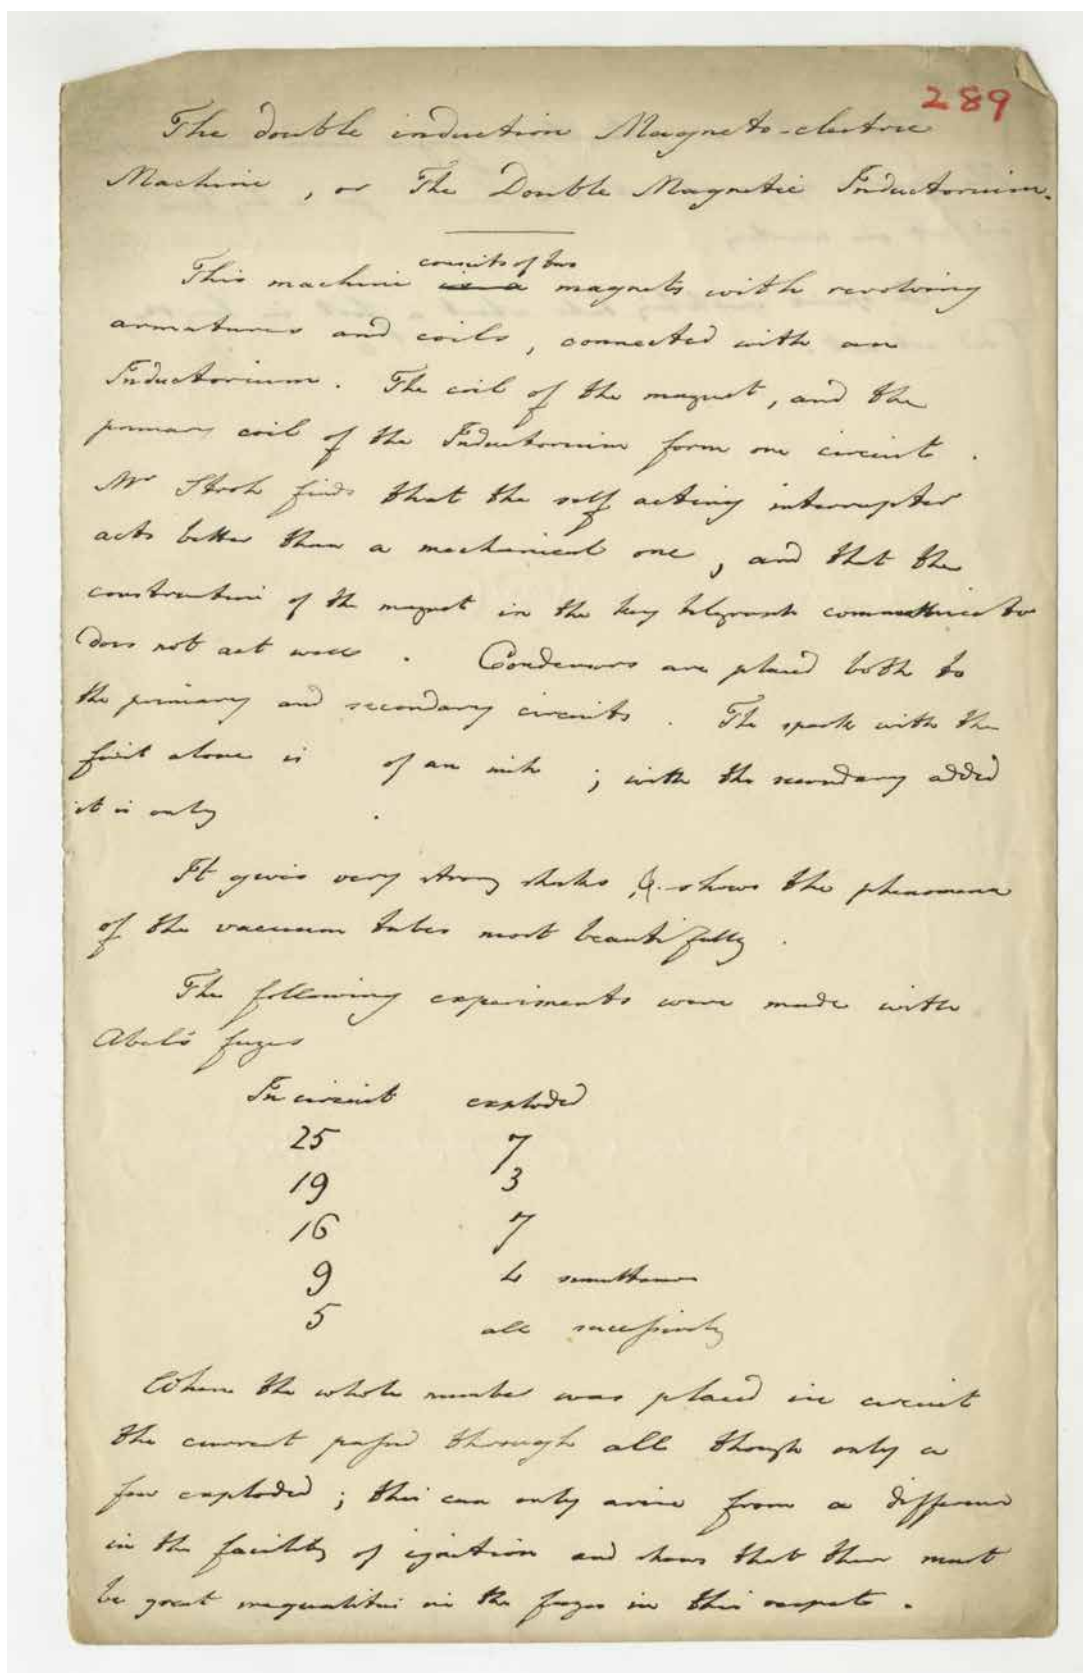 289
The double induction Magneto-electric
Machine, or The Double Magnetic Inductorium.
consists of two
This machine is a magnets with revolving
armatures and coils, connected with an
Inductorium. The coil of the magnet, and the
primary coil of the Inductorium form one circuit.
Mr Stroh finds that the self acting interrupter
acts better than a mechanical one, and that the
construction of the magnet in the key telegraph communicator
does not act well. Condensors are placed both to
the primary and secondary circuits. The spark with the
first alone is of an inch ; with the secondary added
it is only .
It gives very strong shocks, & shows the phenomena
of the vacuum tubes most beautifully.
The following experiments were made with
Abel's fuzes
In circuit exploded
25 7
19 3
16 7
9 4
5 all successively
When the whole number was placed in circuit
the current passed through all though only a
few exploded ; this can only arise from a difference
in the facility of ignition and shows that there must
be great inequalities in the fuzes in this respect.